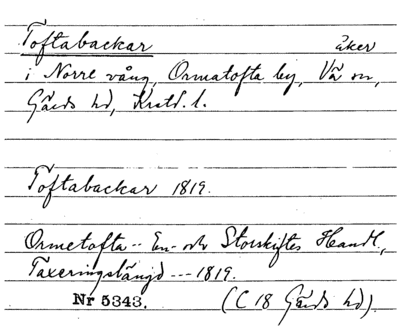 Toftabackar åker
i Norre vång, Ormatofta by, Vä sn,
Gärds hd, Krstd. l.
Toftabackar 1819.
Ormetofta -- En- och Storskiftes Handl.,
Taxeringslängd --- 1819.
Nr 5343. (C 18 Gärds hd).